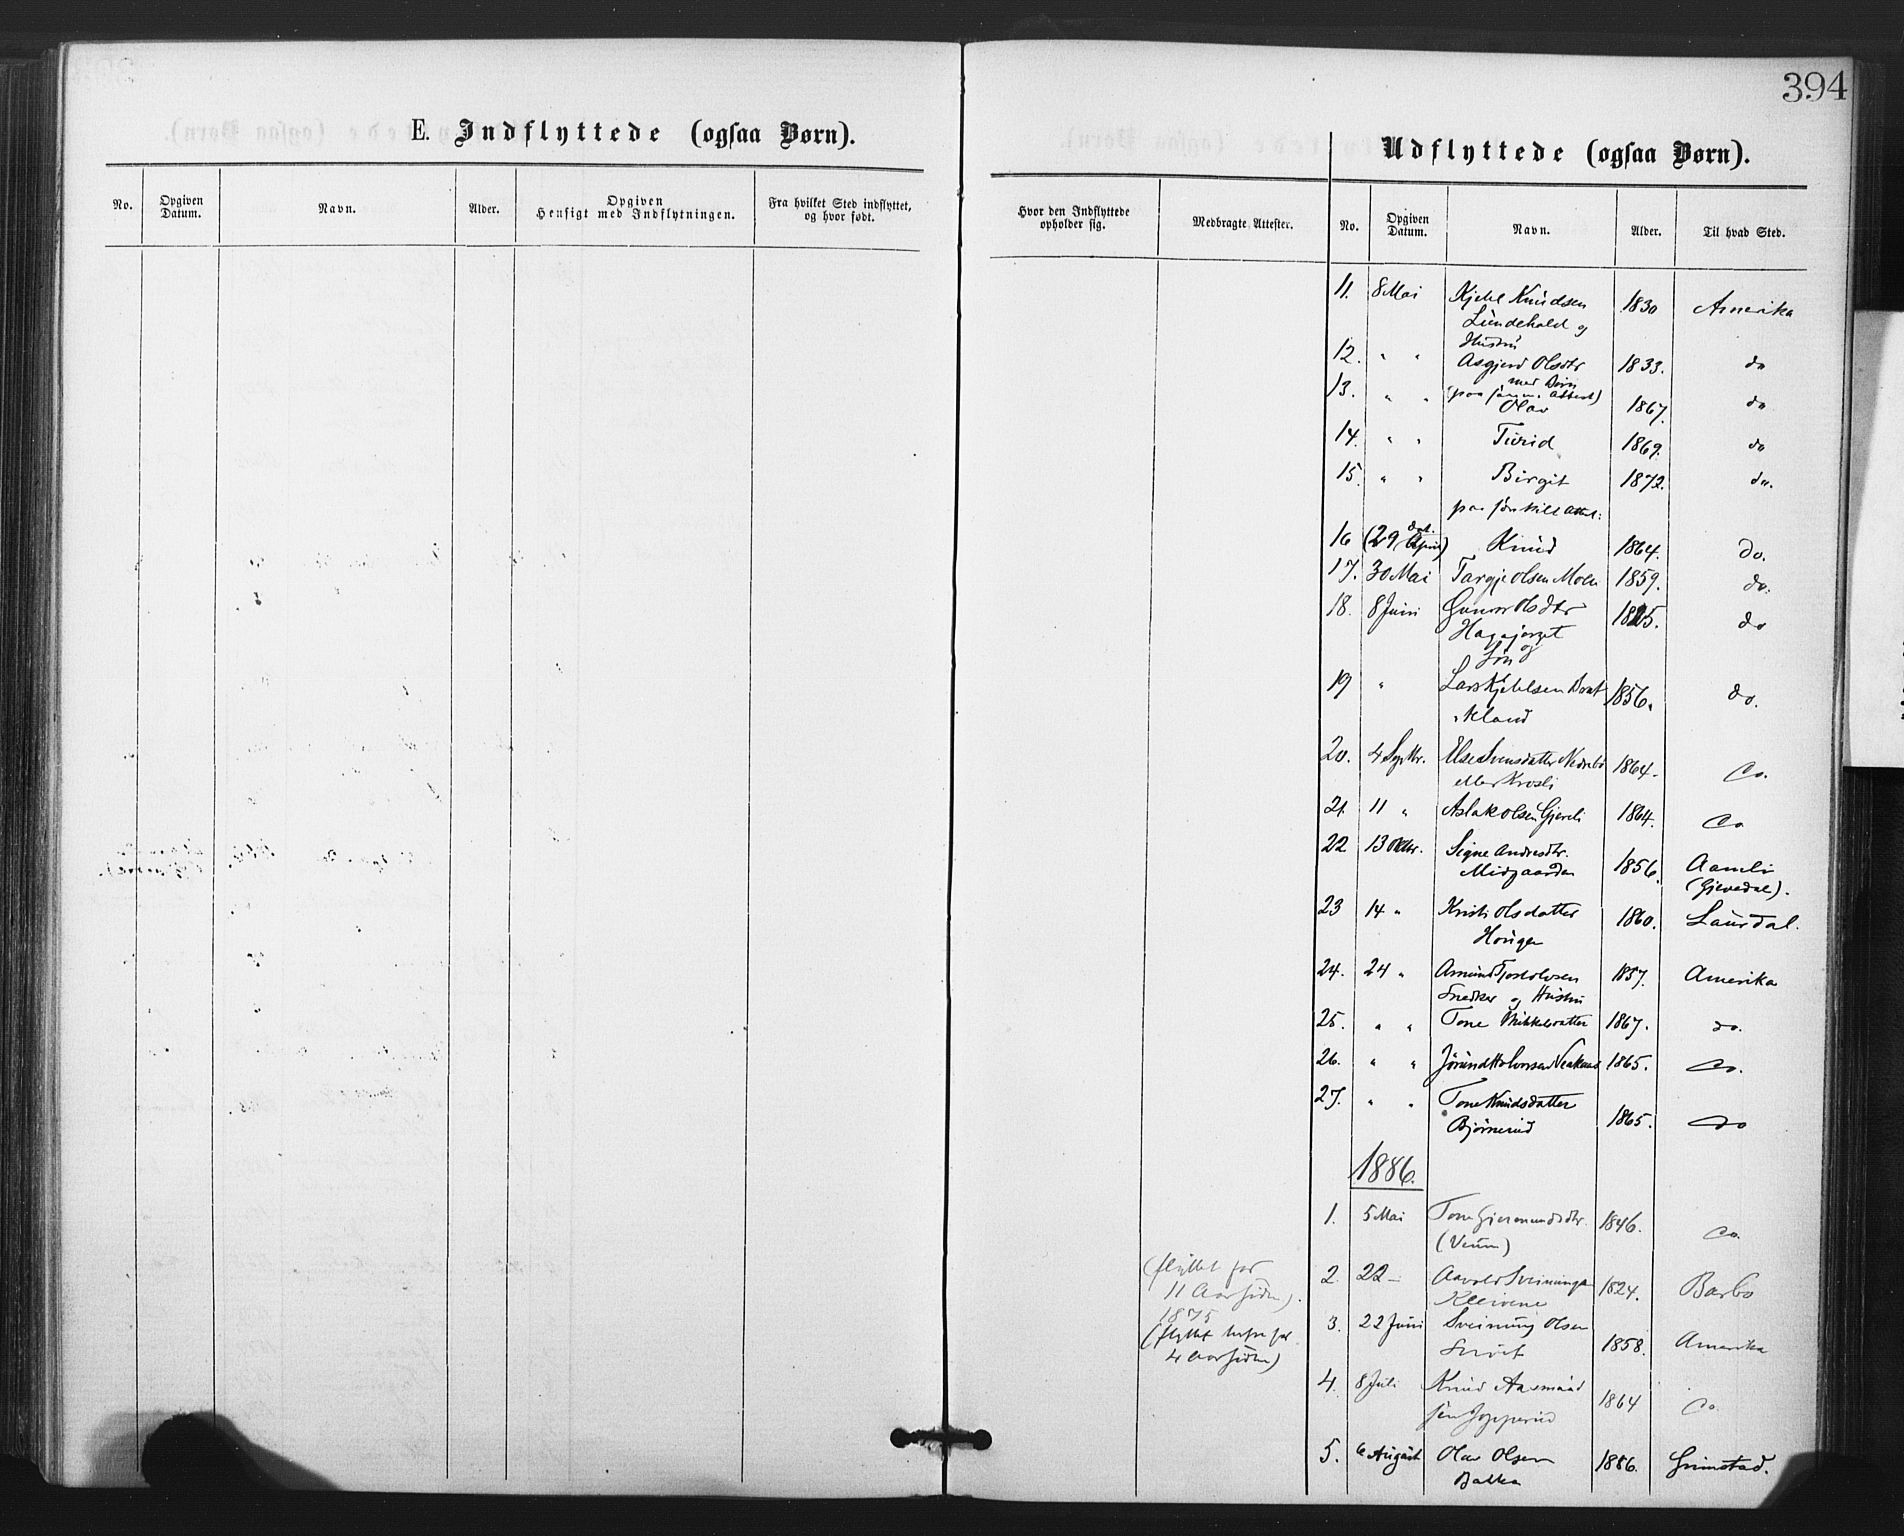 394
E. Indflyttede (ogsaa Børn).
Udflyttede (ogsaa Børn).
No. Opgiven Datum. Navn. Alder. Opgiven Hensigt med Indflytningen. Fra hvilket Sted indflyttet, og hvor født.
Hvor den Indflyttede opholder sig. Medbragte Attester. No. Opgiven Datum. Navn. Alder. Til hvad Sted.
11. 8 Mai Kjetil Knudsen 1830 Amerika
Lundehald og
Hustru
12. " " Asgjerd Olsdtr 1833. do
med Børn
(paa samm. Attest)
13. " " Olav 1867. do
14. " " Turid 1869. do
15. " " Birgit 1872. do.
paa særskilt Attest:
16 (29 dat. April) Knud 1864. Do.
17. 30 Mai Targje Olsen Moen 1859. do.
18. 8 Juni Gunvor Olsdtr 1825. do
og
Søn
19 " Lars Kjetilsen 1856. do.
20. 4 Septbr. Else Svensdatter 1864. Do.
eller Krosli
21. 11 " Aslak Olsen Gjevli 1864. Do
22 13 Oktbr. Signe Andresdtr. 1856. Aamli
Midgaarden (Gjevedal).
23 14 " Kristi Olsdatter 1860. Laurdal.
Hougen
24. 24 " Amund Tjostolvsen 1857. Amerika
Snedker og Hustru
25. " " Tone Mikkelsdatter 1867. do.
26. " " Jørund Halvorsen 1865. Do.
27. " " Tone Knudsdatter 1865. Do
Bjørnerud
1886.
1. 5 Mai Tone Gjermundsdtr. 1846. Do.
(Veum)
(flyttet for 2. 22 – 1824. Barbo
11 Aar siden). Kleivene
1875
3. 22 Juni Sveinung Olsen 1858. Amerika
(flyttet herfra for
4 Aar siden)
4. 8 Juli Knud Aasmund 1864 Do.
sen
5. 6 August Olav Olsen 1886. Grimstad.